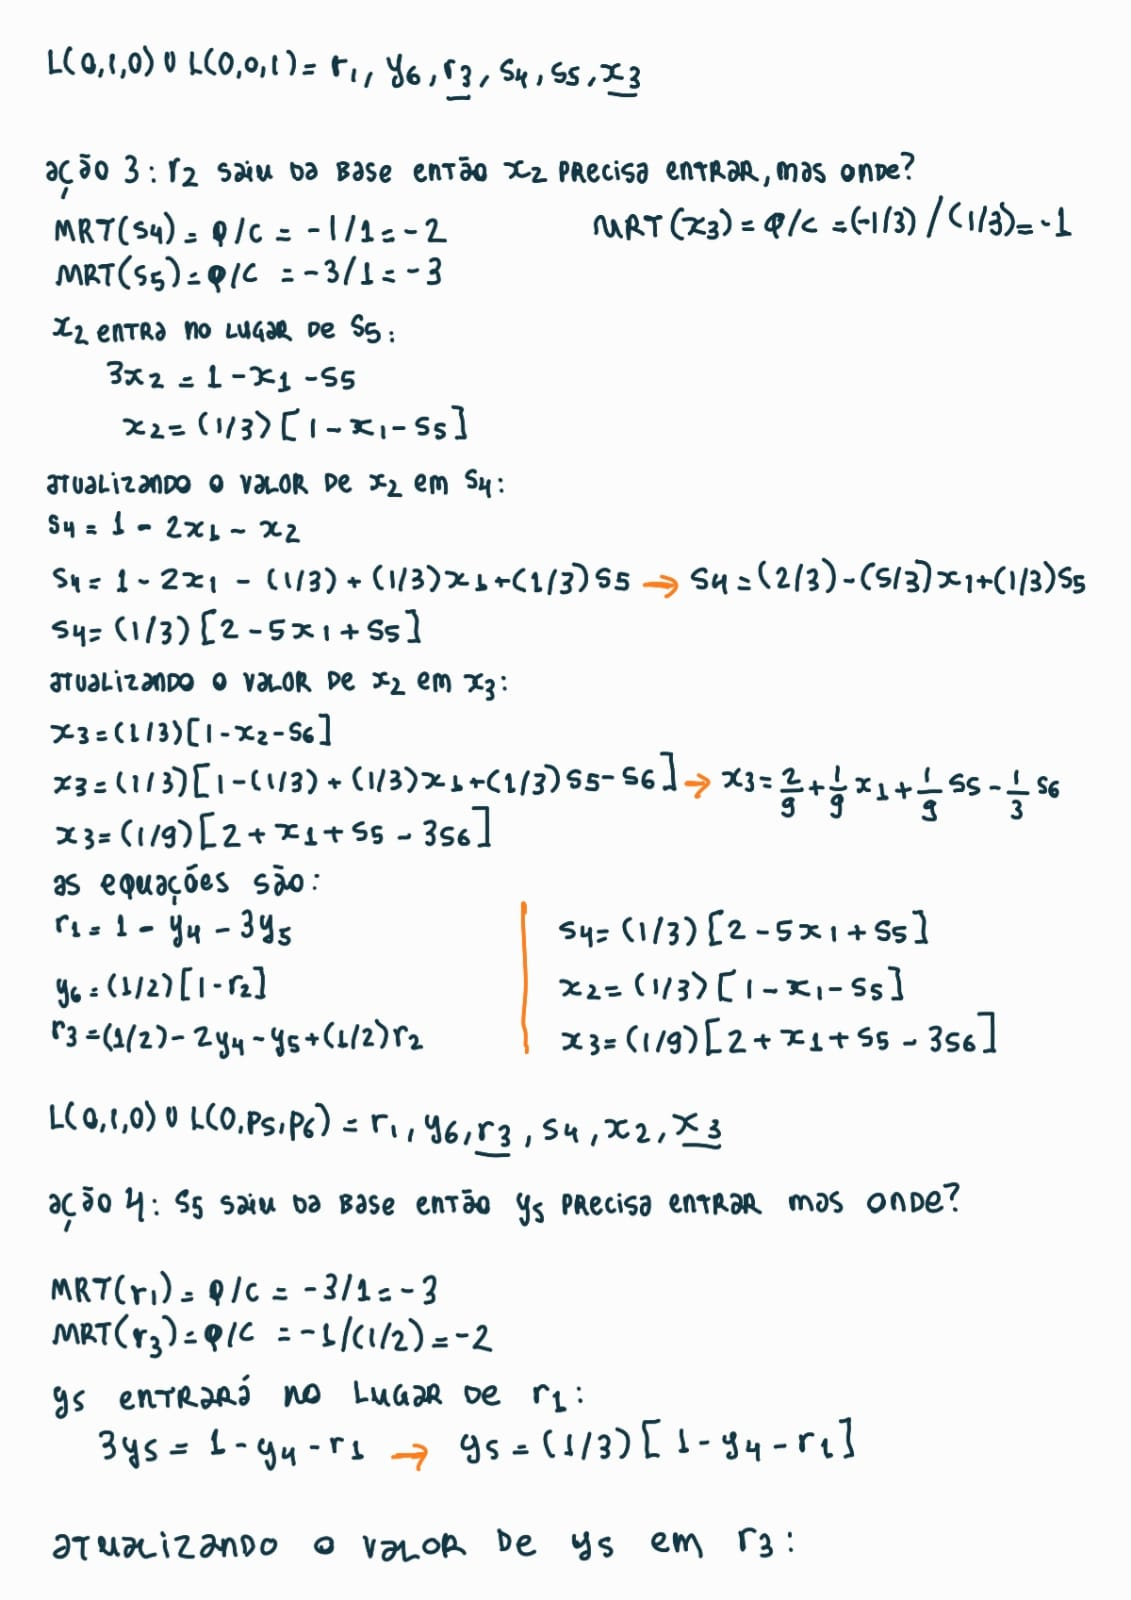 L(0,1,0) ∪ L(0,0,1) = r1, y6, r3, s4, s5, x3
ação 3: r2 saiu da base então x2 precisa entrar, mas onde?
MRT(s4) = q/c = -1/1 = -2
MRT(x3) = q/c = (-1/3) / (1/3) = -1
MRT(s5) = q/c = -3/1 = -3
x2 entra no lugar de s5:
3x2 = 1 - x1 - s5
x2 = (1/3) [1 - x1 - s5]
atualizando o valor de x2 em s4:
s4 = 1 - 2x1 - x2
s4 = 1 - 2x1 - (1/3) + (1/3)x1 + (1/3)s5 → s4 = (2/3) - (5/3)x1 + (1/3)s5
s4 = (1/3) [2 - 5x1 + s5]
atualizando o valor de x2 em x3:
x3 = (1/3) [1 - x2 - s6]
x3 = (1/3) [1 - (1/3) + (1/3)x1 + (1/3)s5 - s6] → x3 = 2/9 + 1/9 x1 + 1/9 s5 - 1/3 s6
x3 = (1/9) [2 + x1 + s5 - 3s6]
as equações são:
r1 = 1 - y4 - 3y5
s4 = (1/3) [2 - 5x1 + s5]
y6 = (1/2) [1 - r2]
x2 = (1/3) [1 - x1 - s5]
r3 = (1/2) - 2y4 - y5 + (1/2)r2
x3 = (1/9) [2 + x1 + s5 - 3s6]
L(0,1,0) ∪ L(0,p5,p6) = r1, y6, r3, s4, x2, x3
ação 4: s5 saiu da base então y5 precisa entrar mas onde?
MRT(r1) = q/c = -3/1 = -3
MRT(r3) = q/c = -1/(1/2) = -2
y5 entrará no lugar de r1:
3y5 = 1 - y4 - r1 → y5 = (1/3) [1 - y4 - r1]
atualizando o valor de y5 em r3: